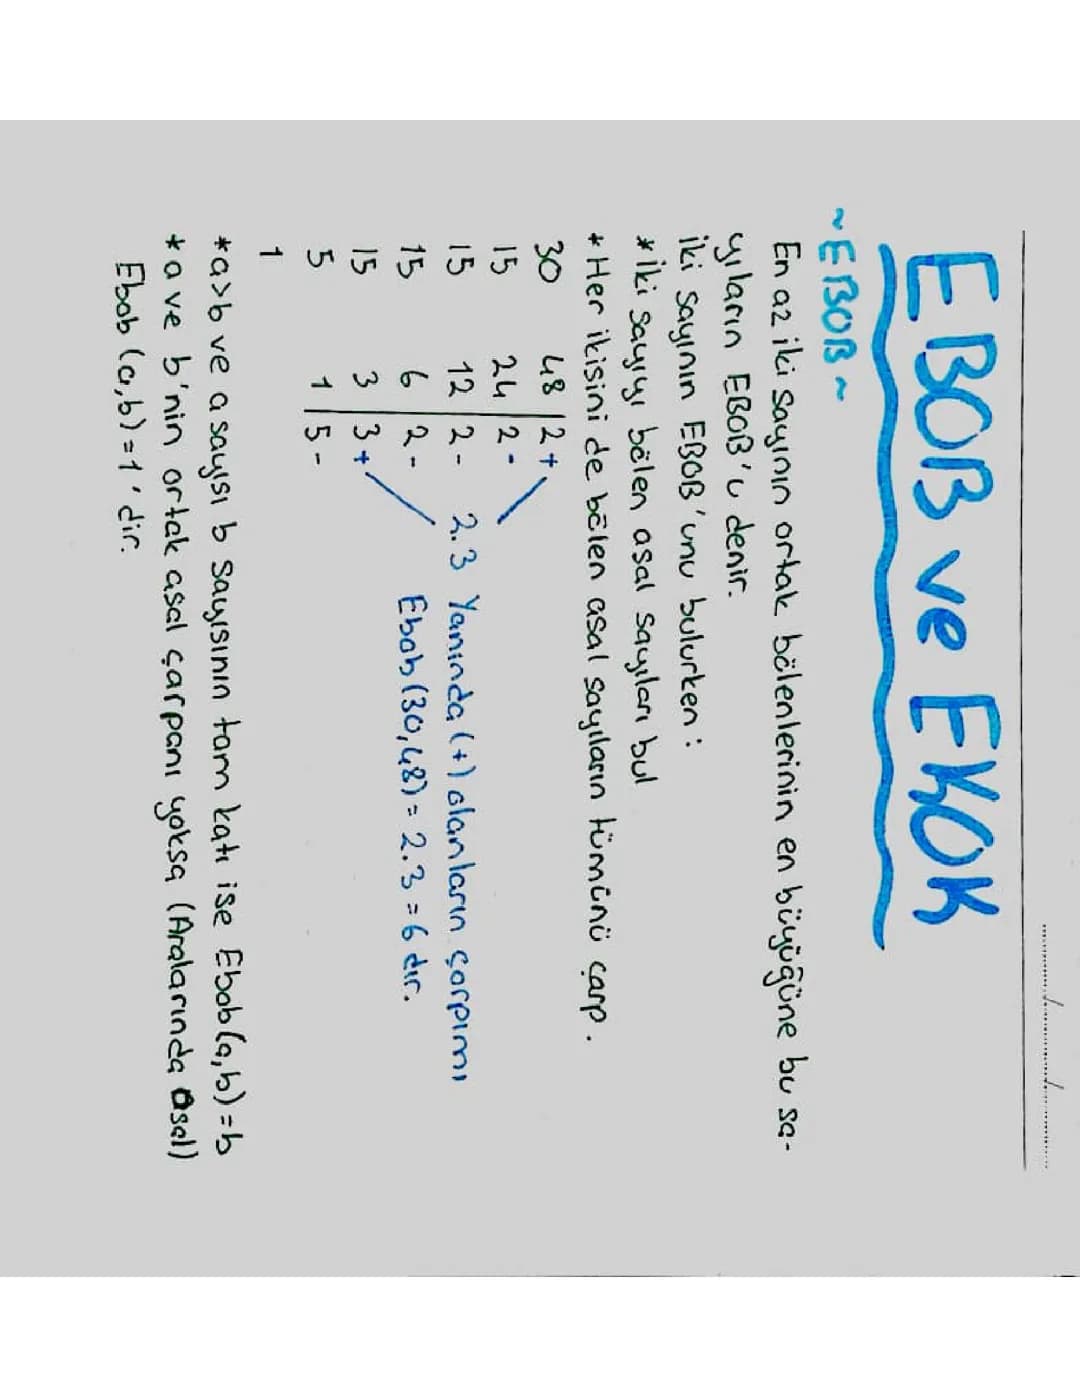 ....../....../......
EBOB ve EKOK
~EBOB~
En az iki sayının ortak bölenlerinin en büyüğüne bu sa-
yıların EBOB'u denir.
iki sayının EBOB'unu bulurken:
*iki sayıyı bölen asal sayıları bul
*Her ikisini de bölen asal sayıların tümünü çarp.
30 48 | 2+
15 24 | 2-
15 12 | 2- 2.3 Yanında (+) olanların çarpımı
15 6 | 2- Ebob(30,48)=2.3=6 dır.
15 3 | 3+
5 1 | 5-
1
*a>b ve a sayısı b sayısının tam katı ise Ebob(a,b)=b
*a ve b'nin ortak asal çarpanı yoksa (Aralarında Asal)
Ebob(a,b)=1'dir.